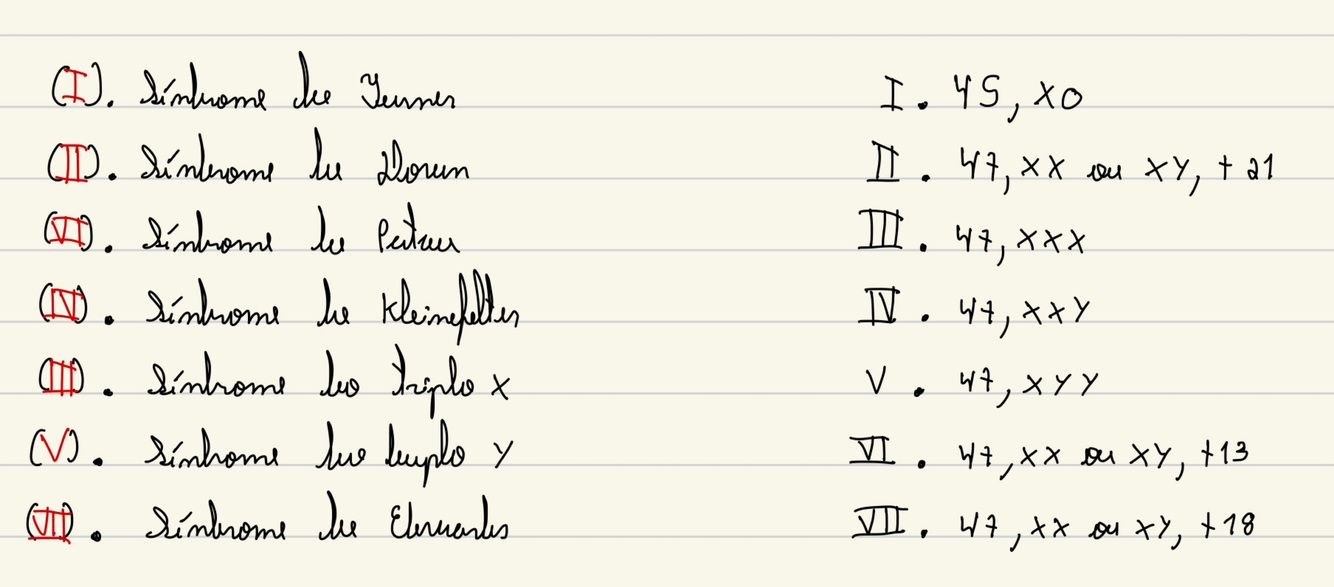 (I). Síndrome de Turner I. 45, X0
(II). Síndrome de Down II. 47, XX ou XY, + 21
(VI). Síndrome de Patau III. 47, XXX
(IV). Síndrome de Kleinefelter IV. 47, XXY
(III). Síndrome do triplo X V. 47, XYY
(V). Síndrome do duplo Y VI. 47, XX ou XY, +13
(VII). Síndrome de Edwards VII. 47, XX ou XY, +18